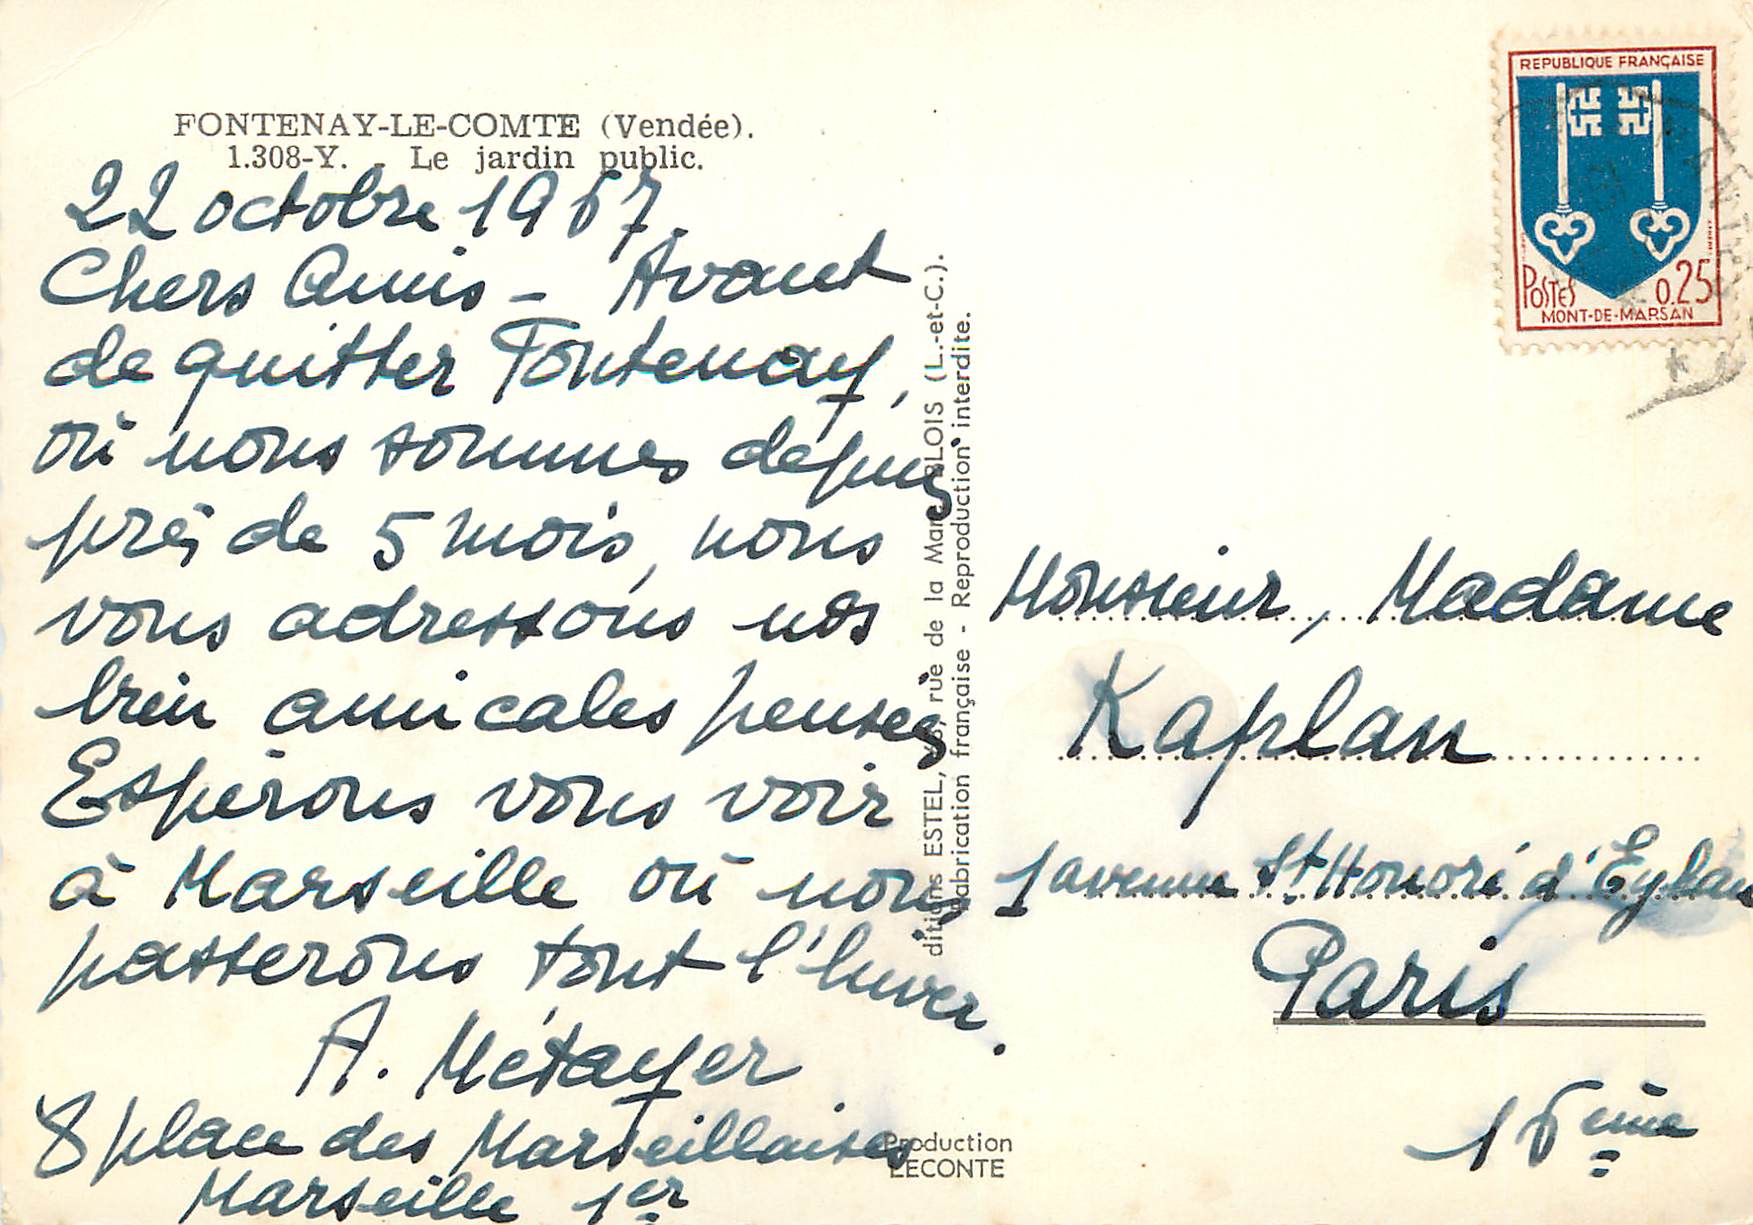 FONTENAY-LE-COMTE (Vendée).
1.308-Y. - Le jardin public.
22 octobre 1967.
Chers Amis - Avant
de quitter Fontenay,
où nous sommes depuis
près de 5 mois, nous
vous adressons nos
bien amicales pensées
Espérons vous voir
à Marseille où nous
passerons tout l'hiver.
A. Métayer
8 place des Marseillaises
Marseille 1er
ditions ESTEL, rue de la Mare BLOIS (L.-et-C.).
Fabrication française - Reproduction interdite.
Production
LECONTE
REPUBLIQUE FRANÇAISE
POSTES 0.25
MONT-DE-MARSAN
Monsieur, Madame
Kaplan
1 avenue St Honoré d'Eylau
Paris
16ème